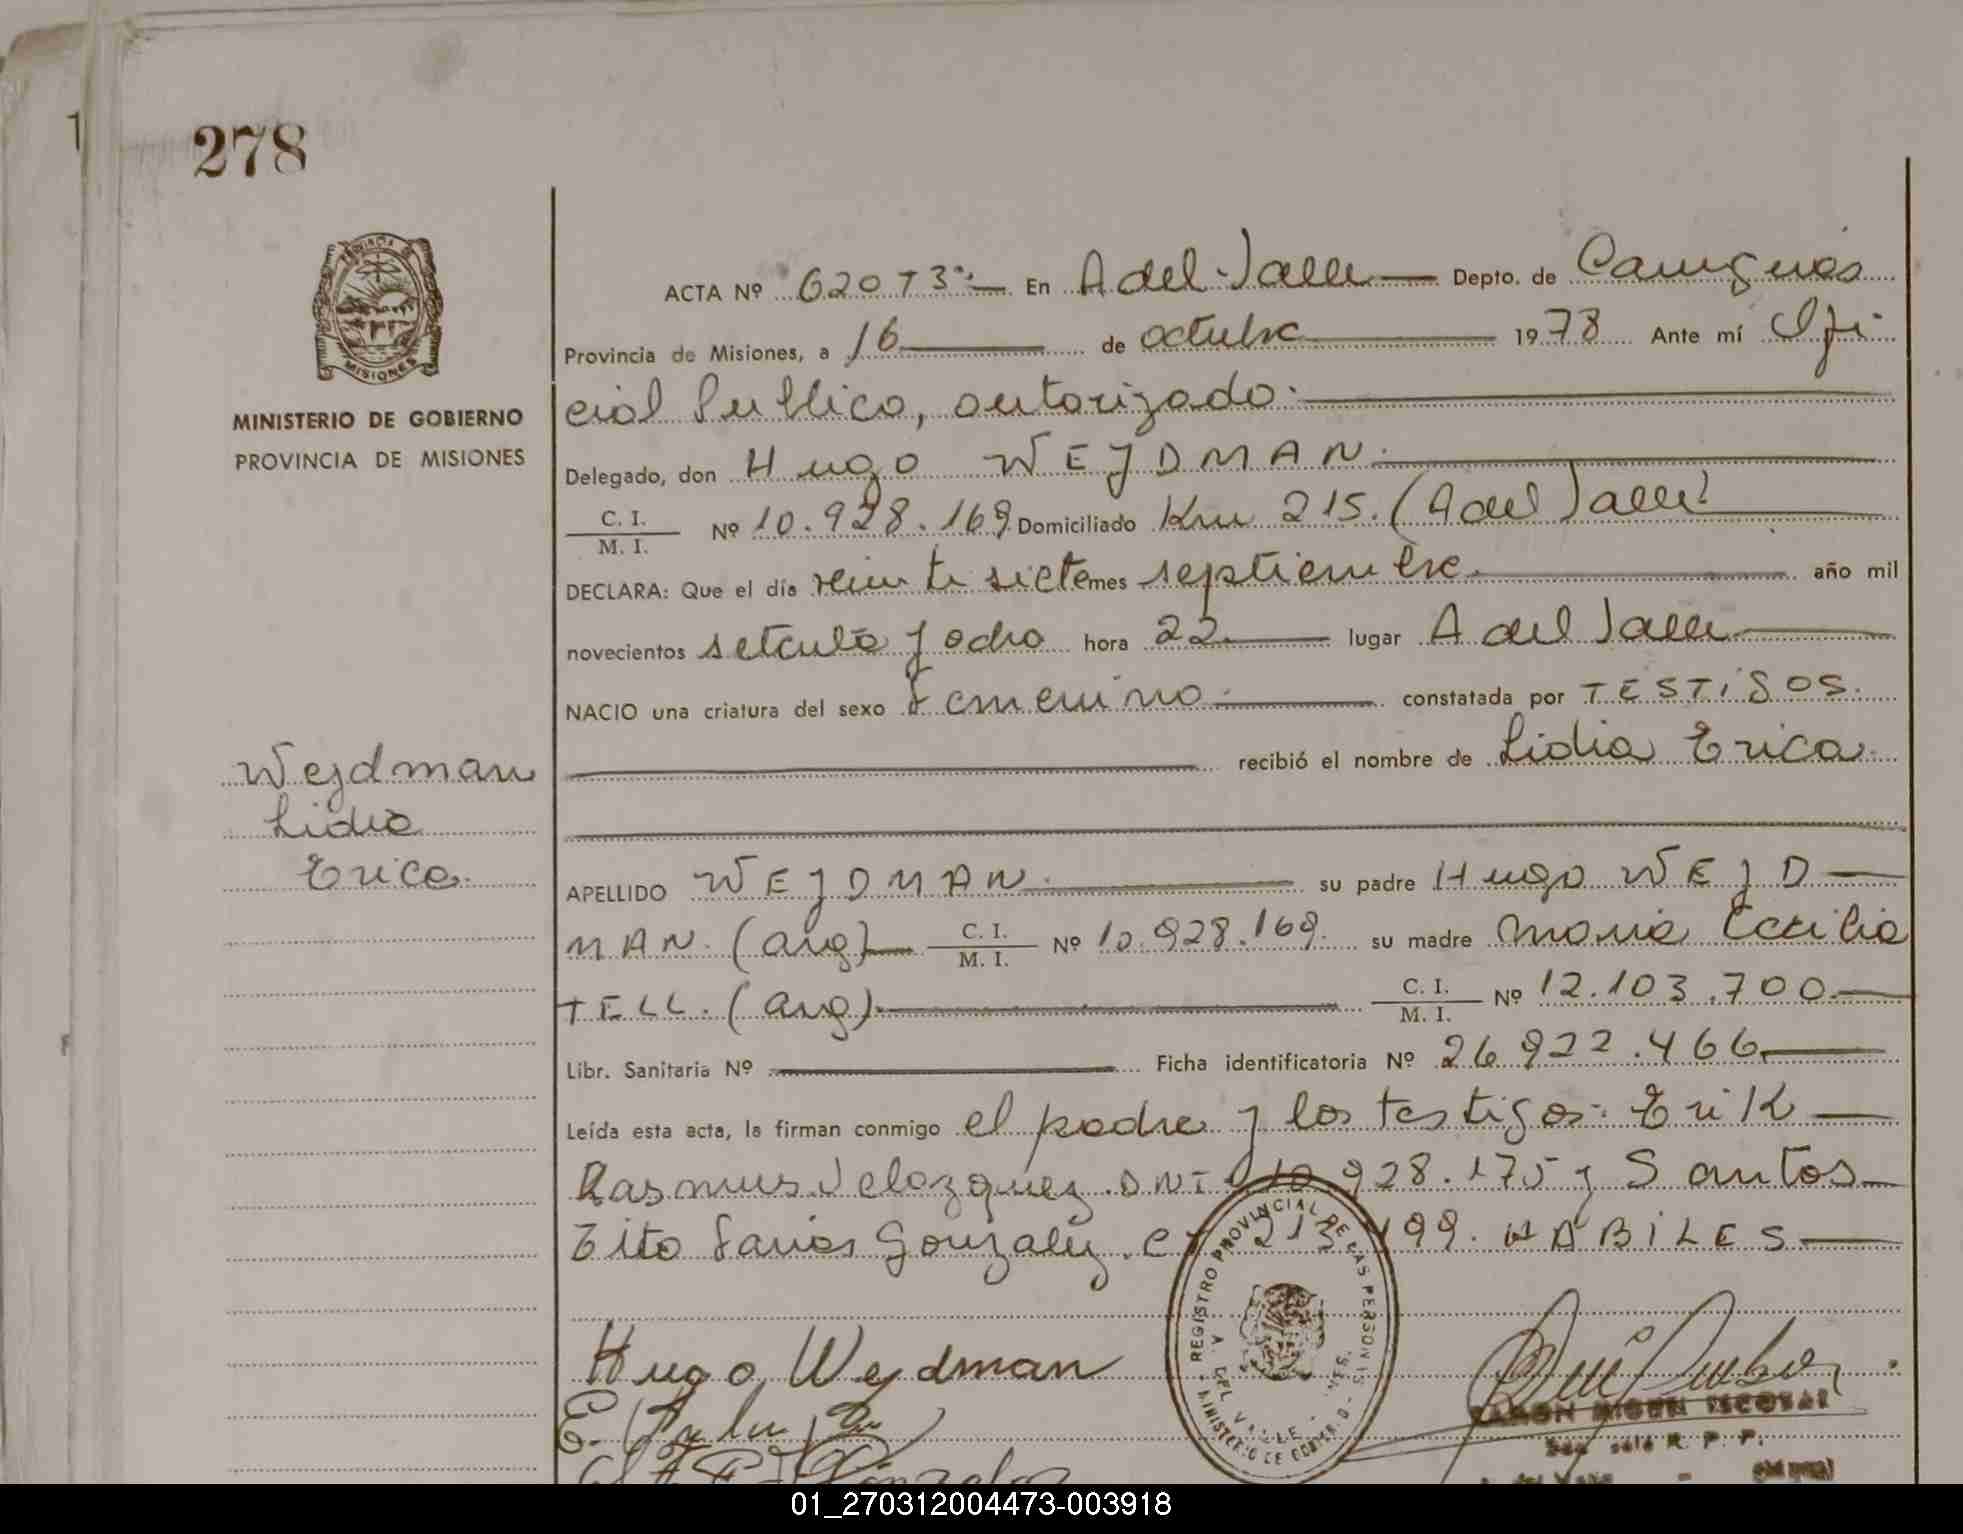 278
ACTA Nº 62073 En A del Valle Depto. de Cainguás
Provincia de Misiones, a 16 de octubre 1978 Ante mí Ofi
cial Publico, autorizado.
MINISTERIO DE GOBIERNO
PROVINCIA DE MISIONES
Delegado, don Hugo WEJDMAN.
C. I. / M. I. Nº 10.928.169 Domiciliado Km 215. (A del Valle)
DECLARA: Que el día veinte siete mes septiembre año mil
novecientos setenta y ocho hora 22 lugar A del Valle
NACIO una criatura del sexo femenino. constatada por TESTIGOS.
recibió el nombre de Lidia Erica.
Wejdman
Lidia
Erica.
APELLIDO WEJDMAN. su padre Hugo WEJD
MAN. (arg) C. I. / M. I. Nº 10.928.169. su madre Maria Cecilia
TELL. (arg). C. I. / M. I. Nº 12.103.700.
Libr. Sanitaria Nº Ficha identificatoria Nº 26.922.466
Leída esta acta, la firman conmigo el padre y los testigos: Erik
Rasmus Velozquez. DNI 10.928.175 y Santos
Tito Farias Gonzalez. C 213.199. HABILES
REGISTRO PROVINCIAL DE LAS PERSONAS
A DEL VALLE
MINISTERIO DE GOBIERNO - MNES.
Hugo Wejdman
RAMON MIGUEL ESCOBAR
R. P. P.
01_270312004473-003918